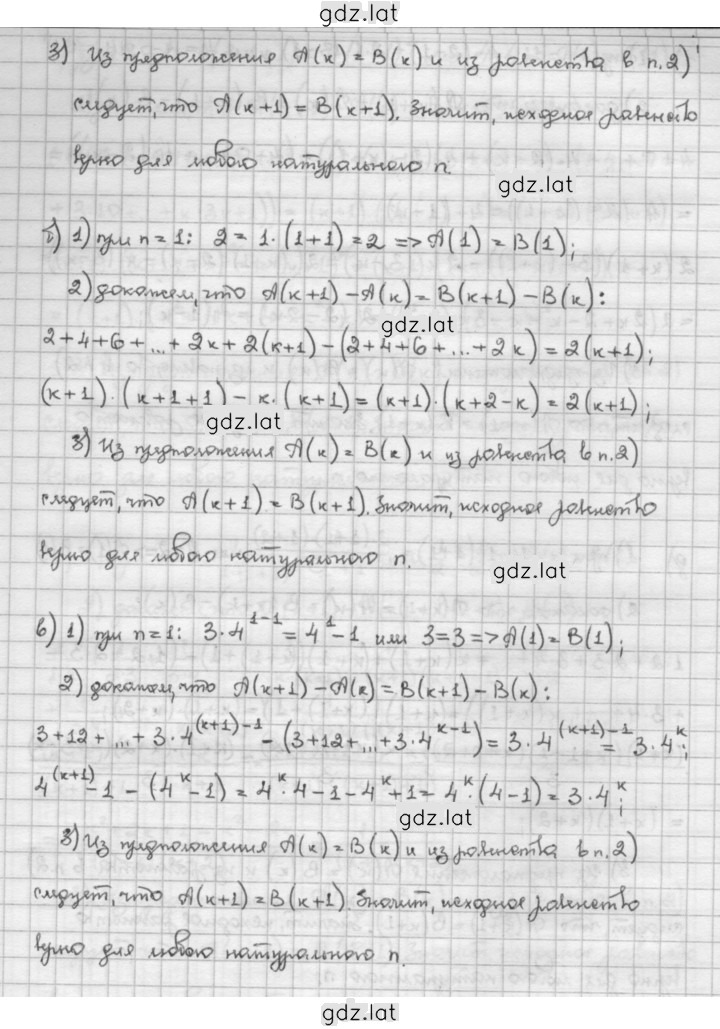 gdz.lat
3) Из предположения A(k) = B(k) и из равенства в п. 2)
следует, что A(k+1) = B(k+1). Значит, исходное равенство
верно для любого натурального n.
gdz.lat
б) 1) при n = 1: 2 = 1·(1+1) = 2 => A(1) = B(1);
2) докажем, что A(k+1) - A(k) = B(k+1) - B(k):
gdz.lat
2+4+6+...+2k+2(k+1)-(2+4+6+...+2k) = 2(k+1);
(k+1)·(k+1+1) - k·(k+1) = (k+1)·(k+2-k) = 2(k+1);
gdz.lat
3) Из предположения A(k) = B(k) и из равенства в п. 2)
следует, что A(k+1) = B(k+1). Значит, исходное равенство
верно для любого натурального n.
gdz.lat
в) 1) при n = 1: 3·4^{1-1} = 4^1 - 1 или 3 = 3 => A(1) = B(1);
2) докажем, что A(k+1) - A(k) = B(k+1) - B(k):
3+12+...+3·4^{(k+1)-1} - (3+12+...+3·4^{k-1}) = 3·4^{(k+1)-1} = 3·4^k;
4^{(k+1)} - 1 - (4^k - 1) = 4^k·4 - 1 - 4^k + 1 = 4^k·(4-1) = 3·4^k;
gdz.lat
3) Из предположения A(k) = B(k) и из равенства в п. 2)
следует, что A(k+1) = B(k+1). Значит, исходное равенство
верно для любого натурального n.
gdz.lat